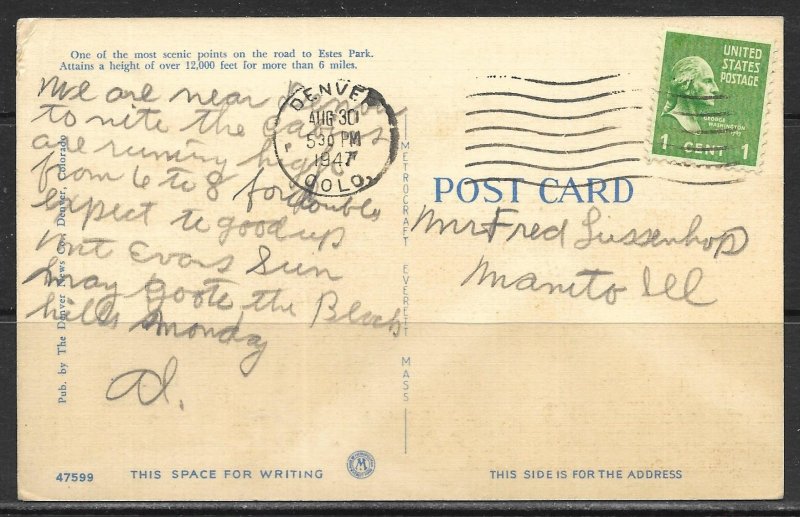 One of the most scenic points on the road to Estes Park.
Attains a height of over 12,000 feet for more than 6 miles.
We are near Denver
to nite the cabins
are running high
from 6 to 8 for doubles
expect to go up
Mt Evans Sun
may go to the Black
hills Monday
Al.
Pub. by The Denver News Co., Denver, Colorado
47599
THIS SPACE FOR WRITING
METROCRAFT EVERETT MASS
DENVER
AUG 30
530 PM
1947
COLO.
UNITED
STATES
POSTAGE
GEORGE
WASHINGTON
1 CENT 1
POST CARD
Mr Fred Lussenhop
Manito Ill
THIS SIDE IS FOR THE ADDRESS